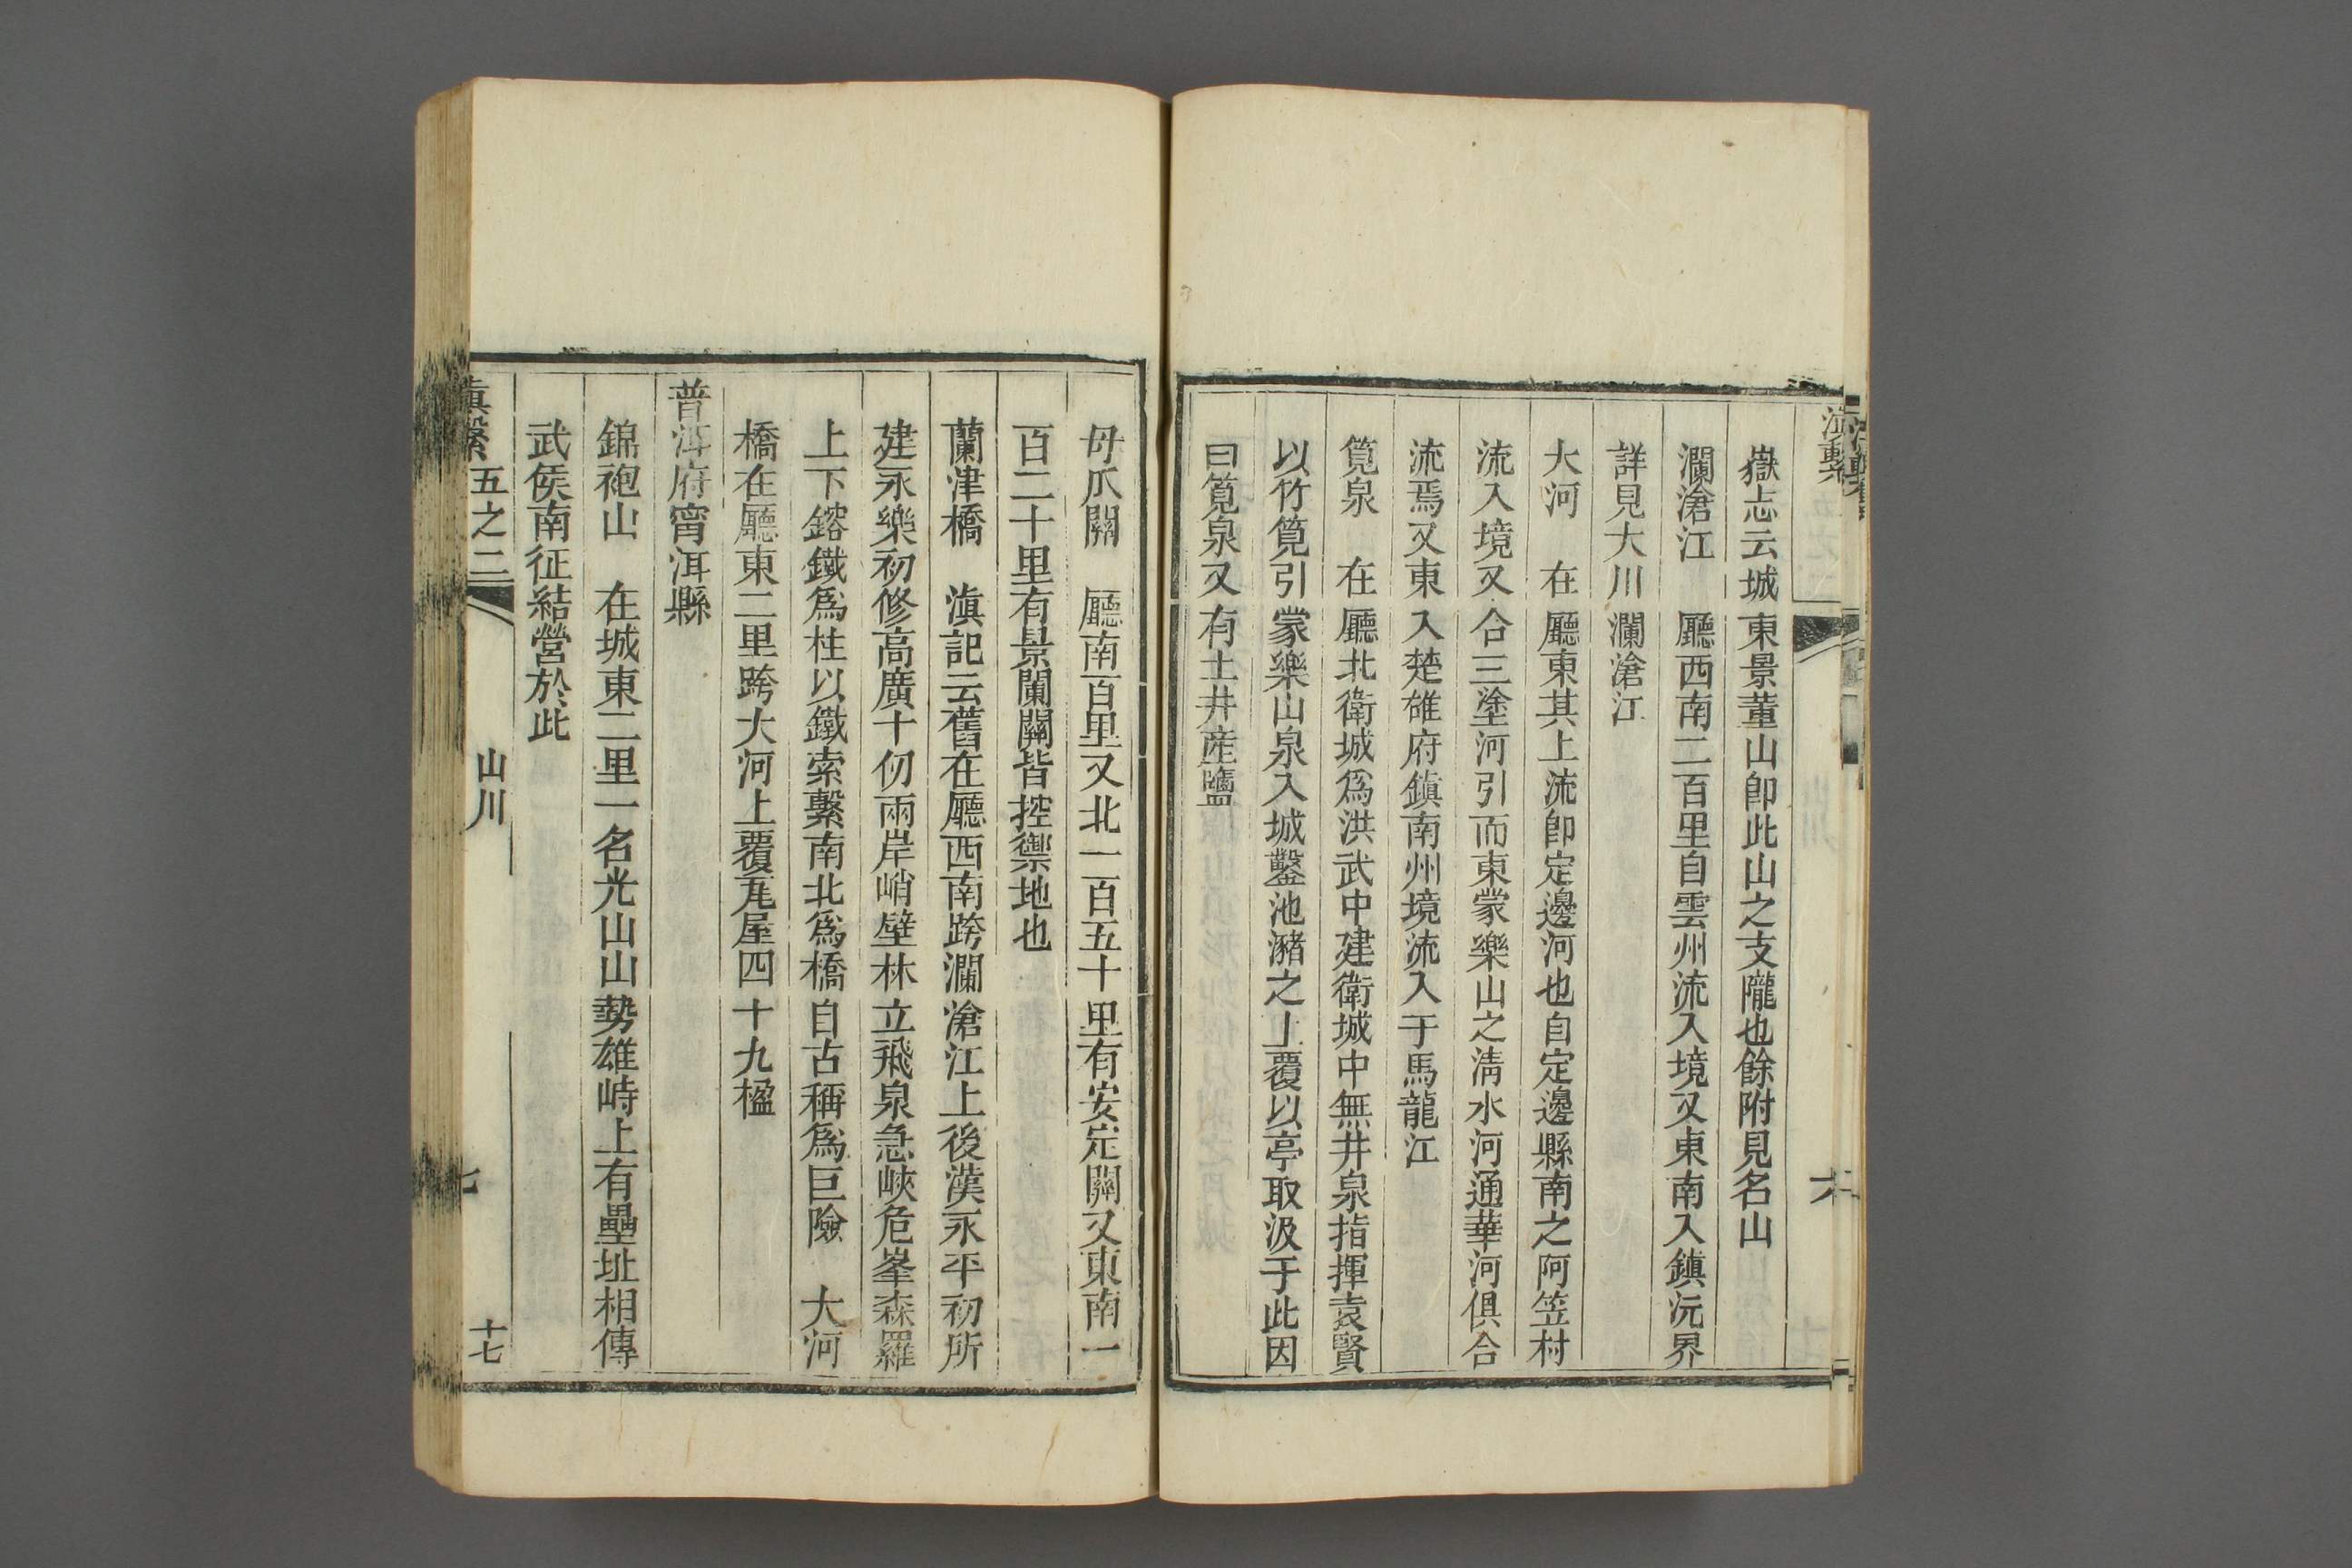 嶽志云城東景董山卽此山之支隴也餘附見名山
瀾滄江　廳西南二百里自雲州流入境又東南入鎮沅界
詳見大川瀾滄江
大河　在廳東其上流卽定邊河也自定邊縣南之阿笠村
流入境又合三塗河引而東蒙樂山之淸水河通華河俱合
流焉又東入楚雄府鎮南州境流入于馬龍江
筧泉　在廳北衛城爲洪武中建衛城中無井泉指揮袁賢
以竹筧引蒙樂山泉入城鑿池瀦之上覆以亭取汲于此因
曰筧泉又有土井産鹽
母瓜關　廳南百里又北一百五十里有安定關又東南一
百二十里有景蘭關皆控禦地也
蘭津橋　滇記云舊在廳西南跨瀾滄江上後漢永平初所
建永樂初修高廣十仞兩岸峭壁林立飛泉急峽危峯森羅
上下鎔鐵爲柱以鐵索繫南北爲橋自古稱爲巨險　大河
橋在廳東二里跨大河上覆瓦屋四十九楹
普洱府甯洱縣
錦袍山　在城東二里一名光山山勢雄峙上有壘址相傳
武侯南征結營於此
滇繫　五之二　山川　十七